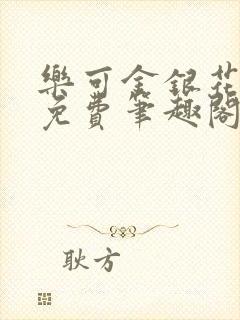 樂可金銀花
免費筆趣閣
耿方